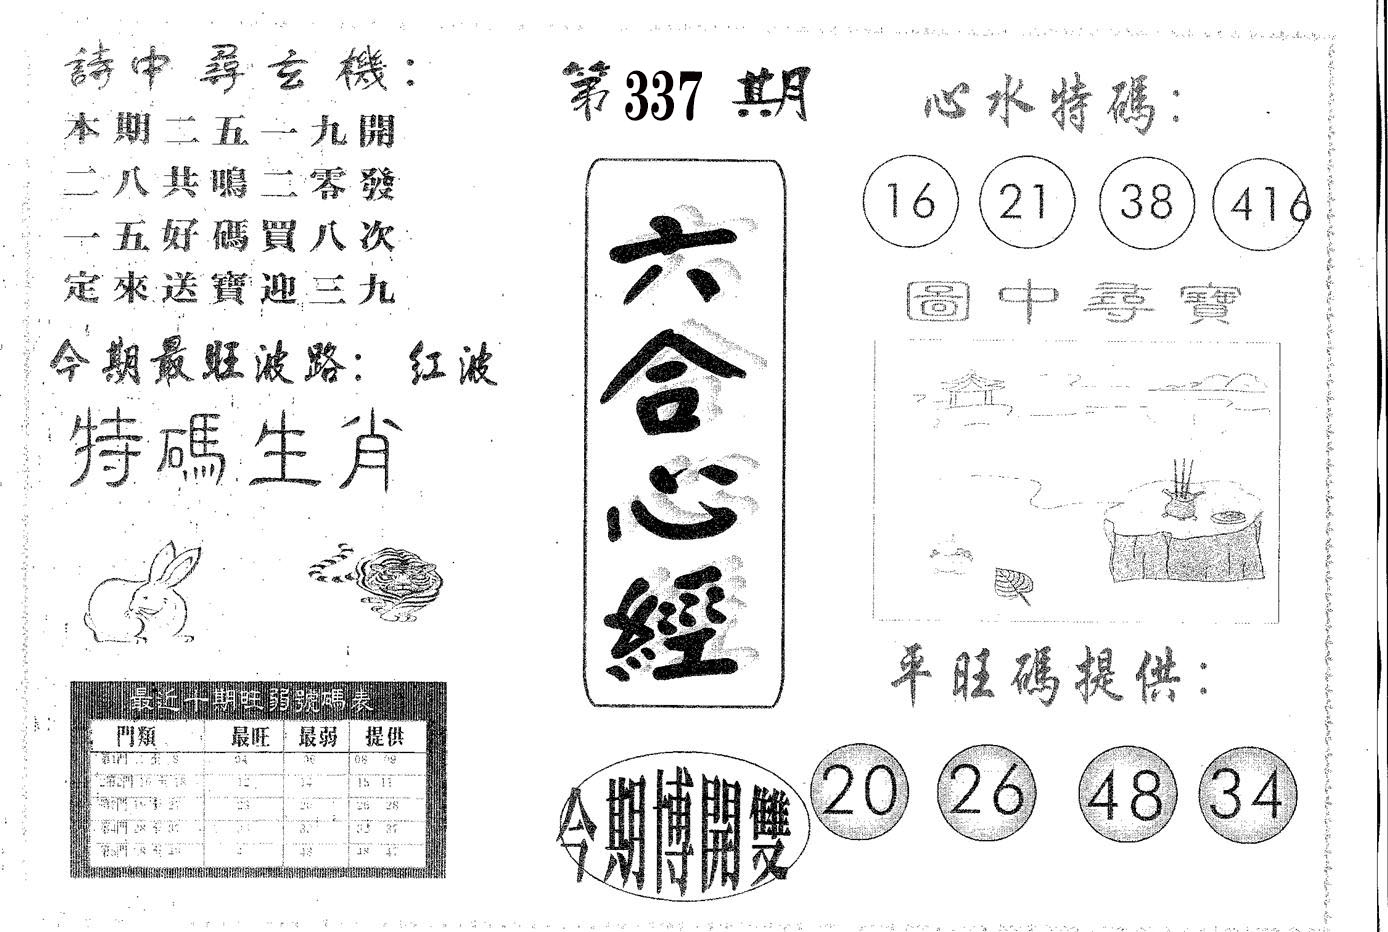 詩中尋玄機：
本期二五一九開
二八共鳴二零發
一五好碼買八次
定來送寶迎三九
今期最旺波路： 红波
特碼生肖
最近十期旺弱號碼表
門類 最旺 最弱 提供
04 06 08 09
12 14 15 11
第337期
六合心經
今期博開雙
心水特碼：
16 21 38 416
圖中尋寶
平旺碼提供：
20 26 48 34